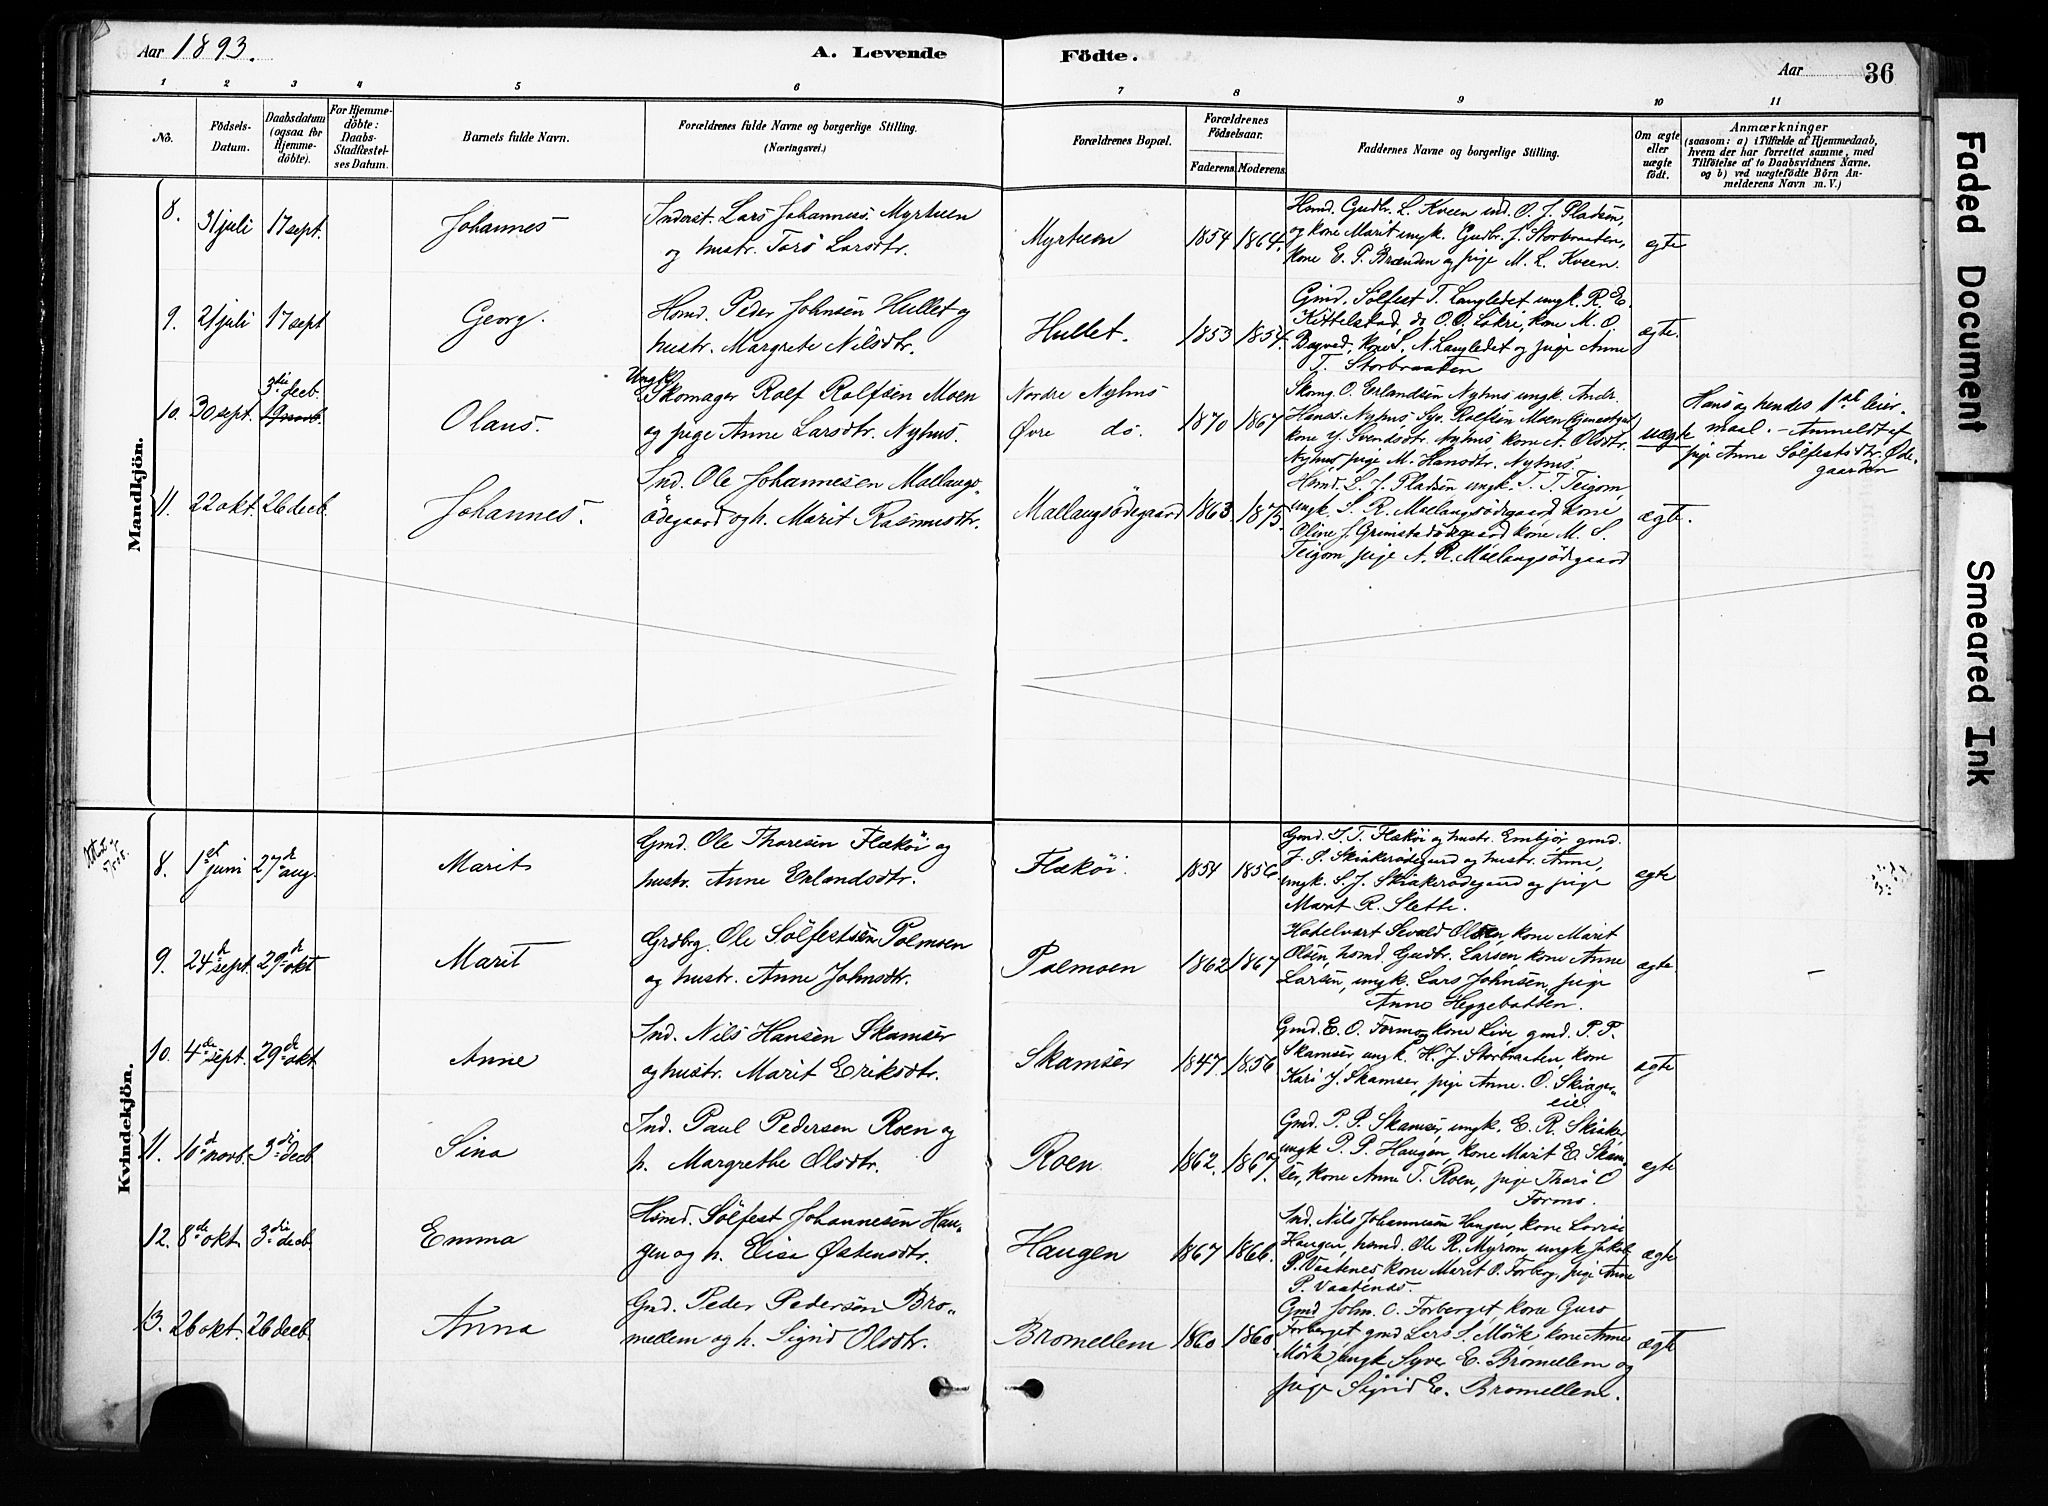 Aar 1893.
A. Levende
Födte.
Aar
36
1 2 3 4 5 6 7 8 9 10 11
No.
Födsels-
Datum.
Daabsdatum
(ogsaa for
Hjemme-
döbte).
For Hjemme-
döbte:
Daabs-
Stadfæstel-
ses Datum.
Barnets fulde Navn.
Forældrenes fulde Navne og borgerlige Stilling.
(Næringsvei.)
Forældrenes Bopæl.
Forældrenes
Födselsaar.
Faderens. Moderens.
Faddernes Navne og borgerlige Stilling.
Om ægte
eller
uægte
födt.
Anmærkninger
(saasom: a) i Tilfælde af Hjemmedaab,
hvem der har forrettet samme, med
Tilföielse af to Daabsvidners Navne.
og b) ved uægtefödte Börn An-
melderens Navn m. V.)
Mandkjön.
8. 31 juli 17 sept. Johannes
Inderst. Lars Johannes. Myrtuen
og hustr. Tarö Larsdtr.
Myrtuen 1854 1864.
Hsmd. Gudbr. L. Kveen ind. O. J. Pladsen,
og kone Marit ungk. Gudbr. J. Storbraaten,
kone E. P. Brænden og pige M. L. Kveen.
ægte
9. 21 juli 17 sept Georg.
Hsmd. Peder Johnsen Hullet og
hustr. Margrete Nilsdtr.
Hullet. 1853 1854.
Gmd. Sölfest T. Langledet ungk. R. E.
Kittelstad, do O. O. Lökri, kone M. O.
Bagved, kone S. N. Langledet og pige Anne
T. Storbraaten
ægte.
10. 30 sept. 3die decb. 19 novb. Olaus.
Ungk.
Skomager Rolf Rolfsen Moen
og pige Anne Larsdtr. Nyhus.
Nordre Nyhus
Øvre do. 1870 1867
Skomg. O. Erlandsen Nyhus ungk. Andr.
Hanss. Nyhus Syv. Rolfsen Moen
kone Y. Svendsdtr. Nyhus kone A. Olsdtr.
Nyhus pige M. Hansdtr. Nyhus.
uægte
Hans og hendes 1ste leier-
maal. - Anmeldt af
pige Anne Sölfestsdtr. Öde-
gaarden
11. 22 okt. 26 decb. Johannes.
Ind. Ole Johannesen Mallangs-
ödegaard og h. Marit Rasmusdtr.
Mallangsödegaard 1863 1875.
Hsmd. L. J. Pladsen ungk. T. T. Teigom,
ungk. S. R. Mallangsödegaard kone
Oline J. Grimstadödegaard kone M. S.
Teigom, pige A. R. Mallangsödegaard
ægte.
Kvindekjön.
8. 1st juni 27de aug. Marit
Gmd. Ole Tharesen Flækøi og
hustr. Anne Erlandsdtr.
Flækøi. 1854 1856
Gmd. T. T. Flækøi og hustr. Embjör, gmd.
J. S. Skiakerödegaard og hustr. Anne,
ungk. S. J. Skiakerödegaard og pige
Marit R. Slette.
ægte
9. 24de sept. 29de okt Marit
Grdbrg. Ole Sölfestsen Polmoen
og hustr. Anne Johnsdtr.
Polmoen 1862 1867
Sevald Olsen, kone Marit
Olsen, hsmd. Gudbr. Larsen, kone Anne
Larsen, ungk. Lars Johnsen, pige
Anne Heggebatten.
ægte
10. 4de sept. 29de okt. Anne
Ind. Nils Hansen Skamser
og hustr. Marit Eriksdtr.
Skamser 1847. 1856
Gmd. E. O. Formo og kone Live, gmd. P. P.
Skamser, ungk. H. J. Storbraaten, kone
Kari J. Skamser, pige Anne. O. Skiager-
eie.
ægte
11. 10d novb. 3die decb Sina
Ind. Paul Pedersen Roen og
h. Margrethe Olsdtr.
Roen. 1862. 1867.
Gmd. P. P. Skamser, ungk. E. R. Skiaker
ungk P. P. Haugen, kone Marit E. Skam-
ser, kone Anne T. Roen, pige Tharö O
Formo.
ægte
12. 8de okt. 3die decb. Emma
Hsmd. Sölfest Johannesen Hau-
gen og h. Elise Østensdtr.
Haugen 1867 1866.
Ind. Nils Johannesen Haugen, kone Lovise
Haugen, hsmd. Ole R. Myrom, ungk. Jakob
P. Vaatenes kone Marit O. Forberg, pige Anne
P. Vaatenes.
ægte
13. 26 okt. 26 decb. Anna
Gmd. Peder Pedersen Bro-
mellem og h. Sigrid Olsdtr.
Bromellem 1860 1860.
Gmd John. O. Forberget, kone Guro
Forberget gmd Lars S. Mörk kone Anne
Mörk, ungk Syver E. Bromellem og
pige Sigrid E. Bromellem.
ægte
Faded Document
Smeared Ink